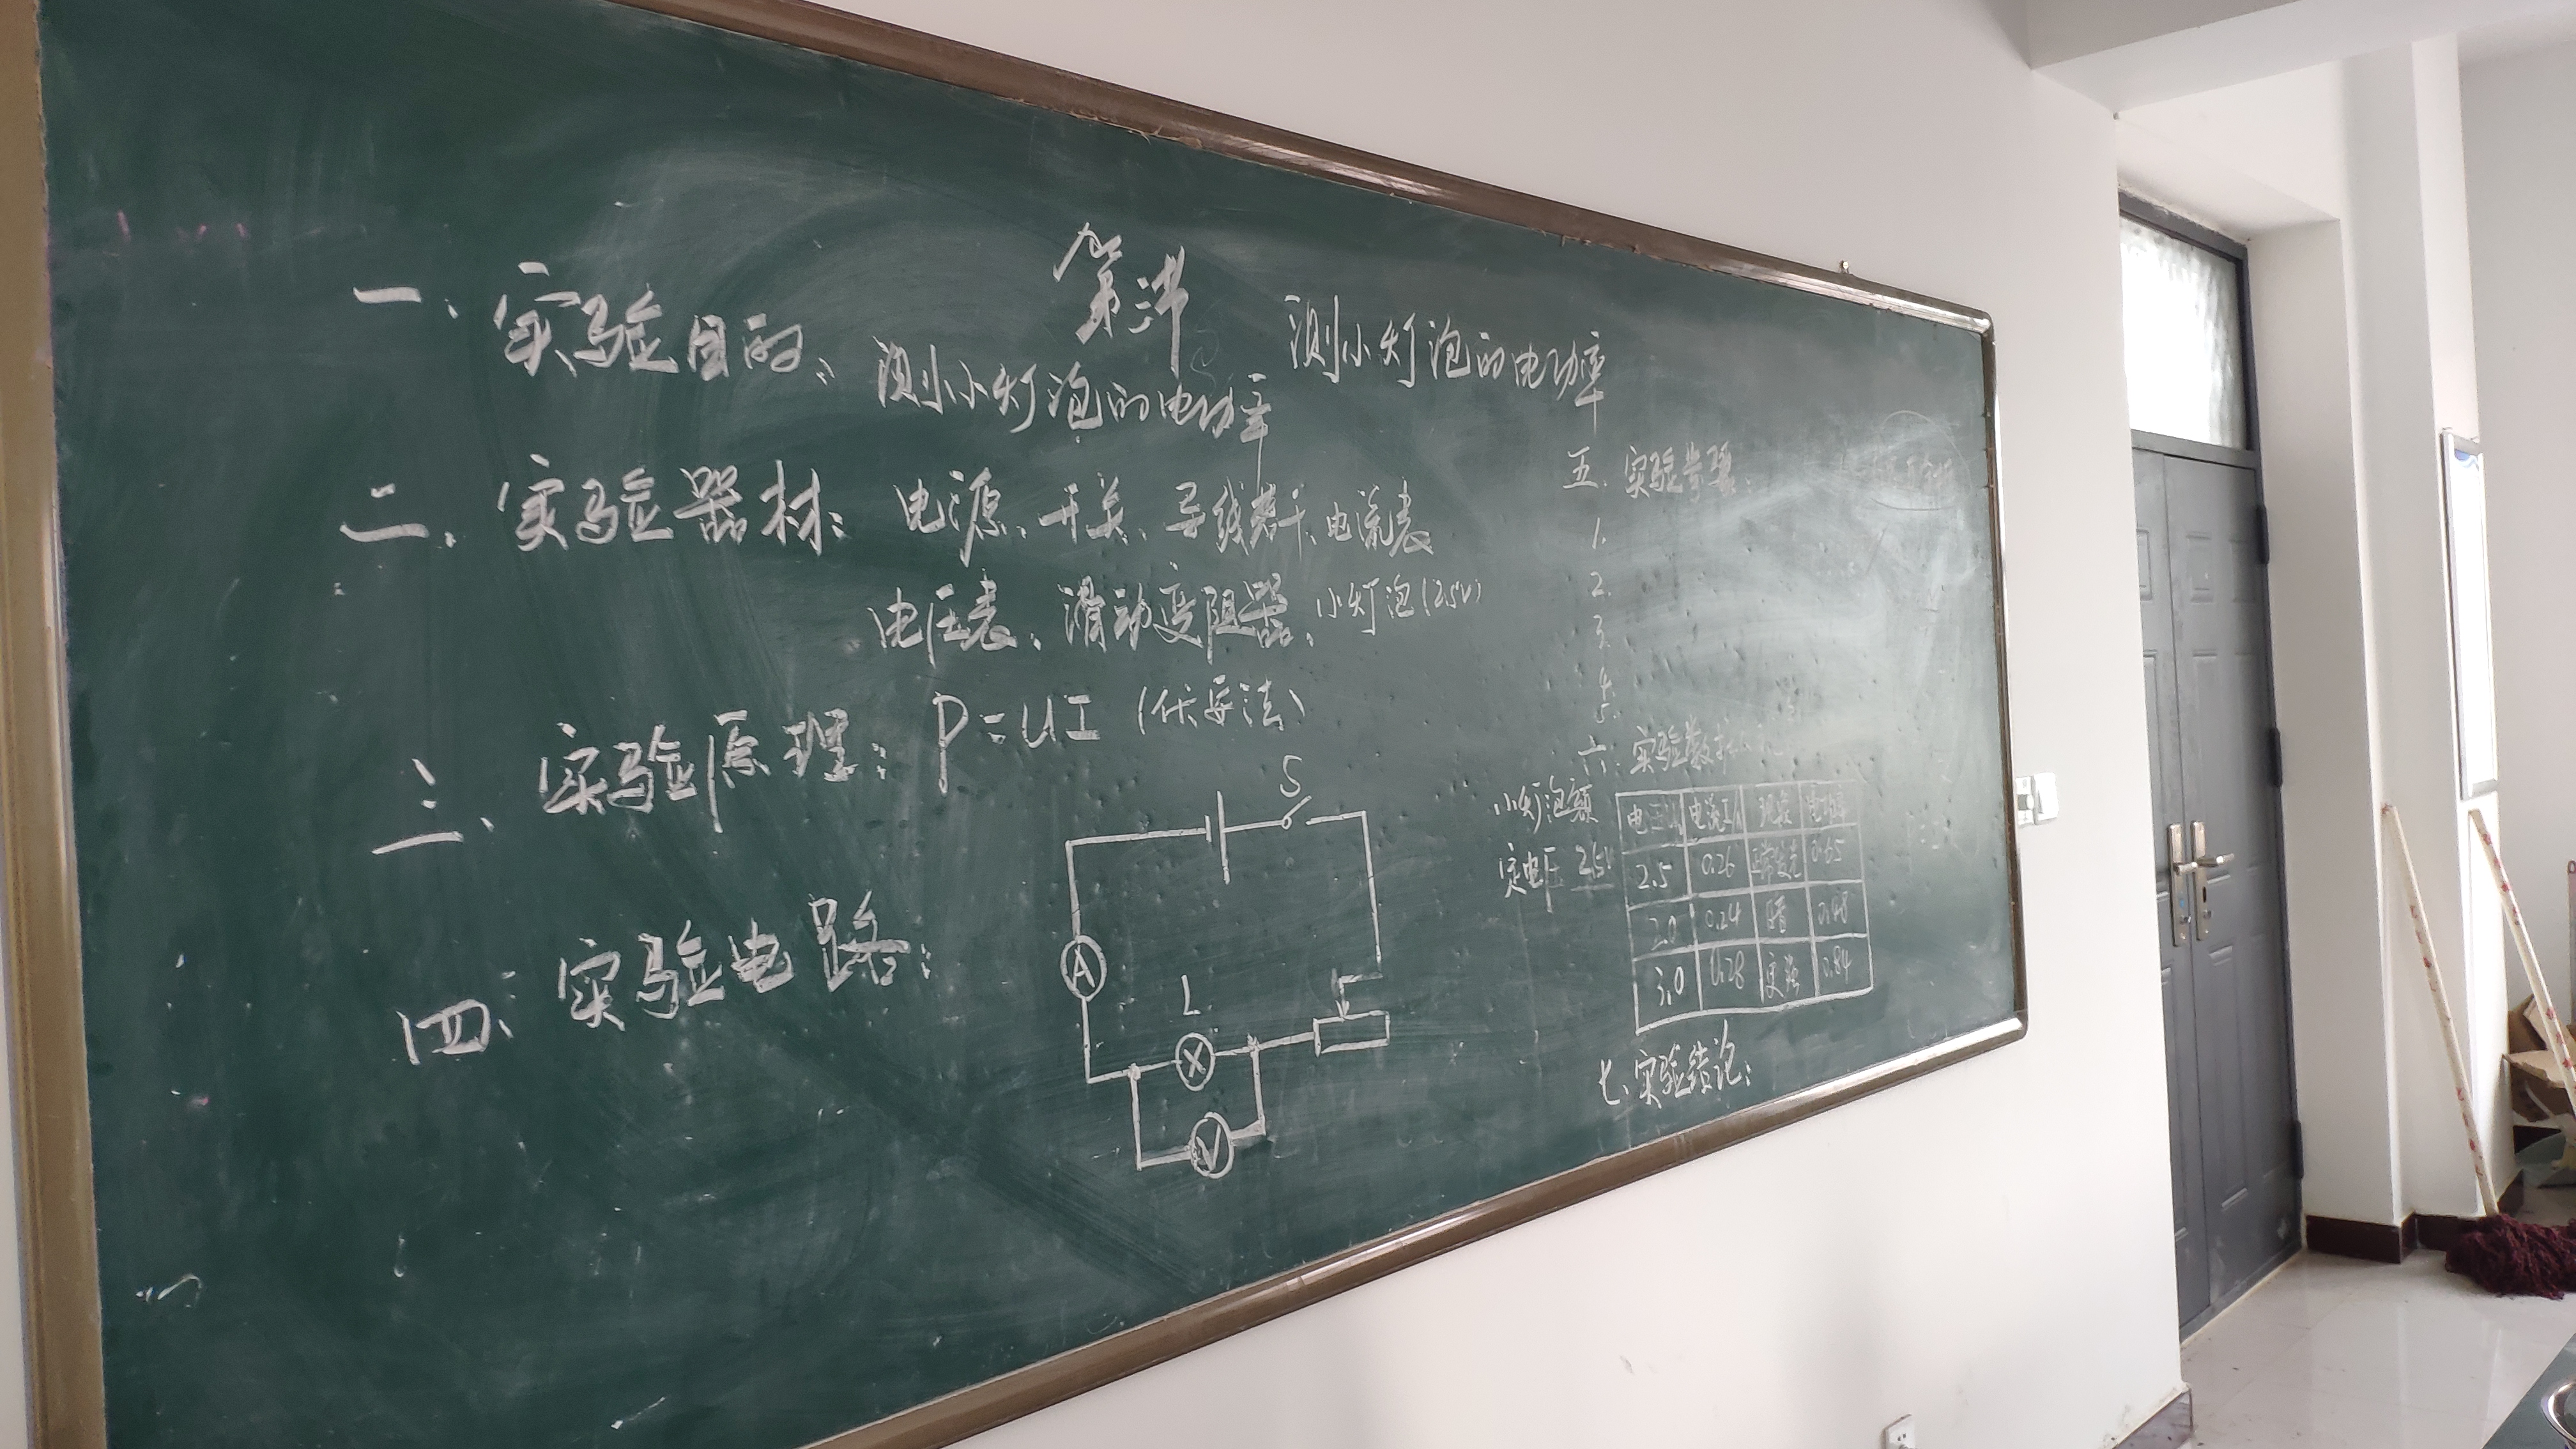 第三节 测小灯泡的电功率
一、实验目的：测小灯泡的电功率
二、实验器材：电源、开关、导线若干、电流表
电压表、滑动变阻器、小灯泡(2.5V)
三、实验原理：P=UI（伏安法）
四、实验电路：
S
A
L
V
五、实验步骤：
1.
2.
3.
4.
5.
六、实验数据
小灯泡额
定电压 2.5V
电压U/V 电流I/A 现象 电功率
2.5 0.26 正常发光 0.65
2.0 0.24 暗 0.48
3.0 0.28 更强 0.84
七、实验结论：